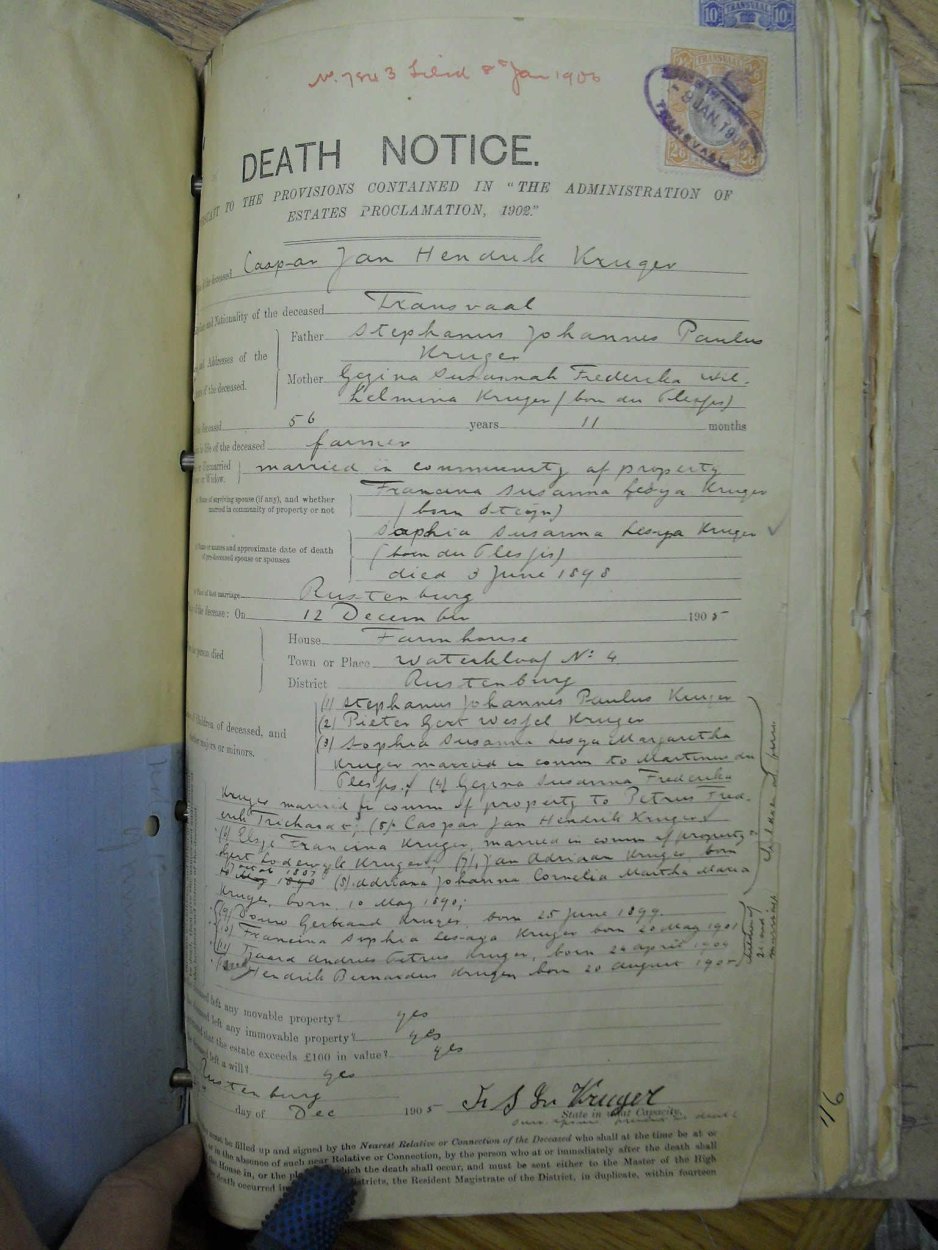 10 TRANSVAAL 10
No. 7843 Filed 8th Jan 1906
TRANSVAAL
JAN. 19
TRANSVAAL
2/6 2/6
DEATH NOTICE.
TO THE PROVISIONS CONTAINED IN "THE ADMINISTRATION OF
ESTATES PROCLAMATION, 1902."
of the deceased Caspar Jan Hendrik Kruger
and Nationality of the deceased Transvaal
Addresses of the
of the deceased.
Father Stephanus Johannes Paulus
Kruger
Mother Gezina Susannah Frederika Wil-
helmina Kruger (born du Plessis)
deceased 56 years 11 months
of the deceased farmer
Unmarried
or Widow. married in community of property
Name of surviving spouse (if any), and whether
married in community of property or not
Francina Susanna Kruger
(born Steyn)
Name or names and approximate date of death
of pre-deceased spouse or spouses
Sophia Susanna Kruger
(born du Plessis)
died 3 June 1898
Place of last marriage Rustenburg
of the decease: On 12 December 1905
person died
House Farmhouse
Town or Place Waterkloof No. 4
District Rustenburg
Children of deceased, and
majors or minors.
(1) Stephanus Johannes Paulus Kruger
(2) Pieter Gert Wessel Kruger
(3) Sophia Susanna Lesya Margaretha
Kruger married in comm to Martinus du
Plessis; (4) Gezina Susanna Frederika
Kruger married in comm of property to Petrus Fred-
erik Trichardt; (5) Caspar Jan Hendrik Kruger
(6) Elsje Francina Kruger, married in comm of property
Gert Lodewyk Kruger; (7) Jan Adriaan Kruger, born
1887 (8) Adriana Johanna Cornelia Martha Maria
Kruger, born 10 May 1890;
(9) Douw Gerbrand Kruger, born 25 June 1899.
(10) Francina Sophia Kruger born 20 May 1901
(11) Tjaard Andries Petrus Kruger, born 24 April 1904
Hendrik Bernardus Kruger born 20 August 1905
children of
children of
2nd
marriage
left any movable property? yes
left any immovable property? yes
that the estate exceeds £100 in value? yes
left a will? yes
Rustenburg
day of Dec 1905
Kruger
State in what Capacity.
must be filled up and signed by the Nearest Relative or Connection of the Deceased who shall at the time be at or
in the absence of such near Relative or Connection, by the person who at or immediately after the death shall
the House in, or the which the death shall occur, and must be sent either to the Master of the High
death occurred in Districts, the Resident Magistrate of the District, in duplicate, within fourteen
116